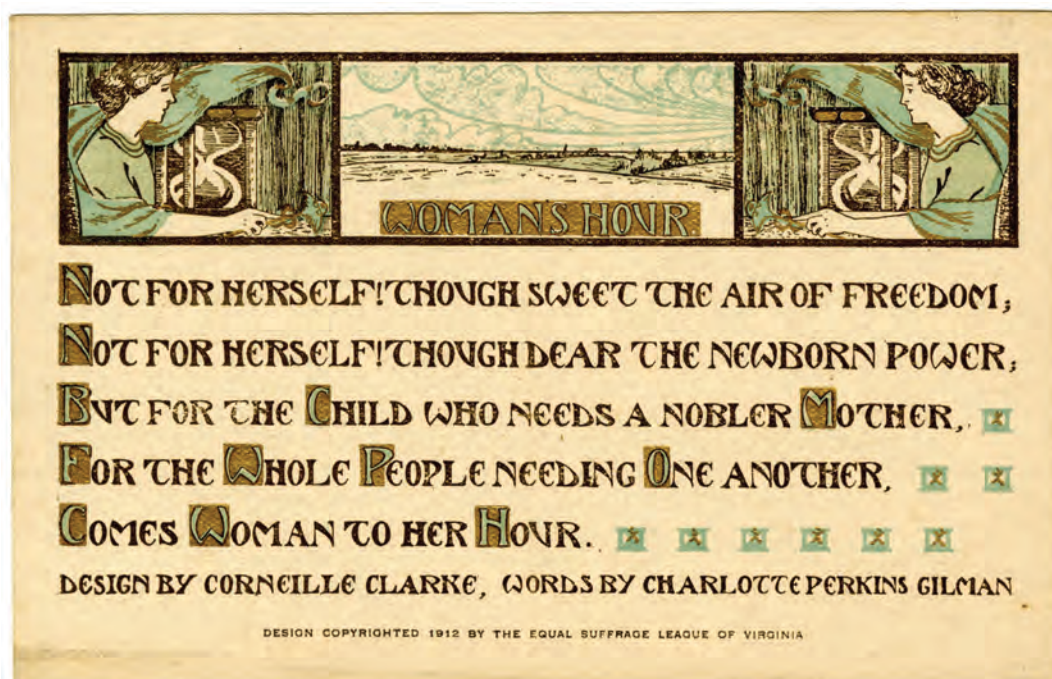 WOMAN'S HOUR
NOT FOR HERSELF! THOUGH SWEET THE AIR OF FREEDOM;
NOT FOR HERSELF! THOUGH DEAR THE NEWBORN POWER;
BUT FOR THE CHILD WHO NEEDS A NOBLER MOTHER,
FOR THE WHOLE PEOPLE NEEDING ONE ANOTHER,
COMES WOMAN TO HER HOUR.
DESIGN BY CORNEILLE CLARKE, WORDS BY CHARLOTTE PERKINS GILMAN
DESIGN COPYRIGHTED 1912 BY THE EQUAL SUFFRAGE LEAGUE OF VIRGINIA